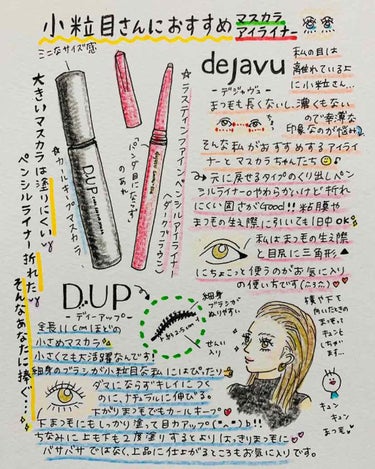 小粒目さんにおすすめ
マスカラ
アイライナー
ミニなサイズ感
大きいマスカラは塗りにくい
ペンシルライナー折れた
そんなあなたに捧ぐ…
☆カールキープマスカラ
D.UP
パンダ目にならず
☆ラスティンファインペンシルアイライナー
(ダークブラウン)
dejavu
ーデジャヴュー
私の目は
離れている上
に小粒さん…
まつ毛も長くないし、濃くもない
ので幸薄な
印象なのが悩み
そんな私がおすすめするアイライ
ナーとマスカラちゃんたち
元に戻せるタイプのくり出しペン
シルライナーやわらかいけど折れ
にくい固さがGood!!粘膜や
まつ毛の生え際に引いても1日中OK
私はまつ毛の生え際
と目尻に三角形▲
にちょこっと使うのがお気に入り
の使い方です(ニコッ)♡
D.UP
ーディーアップー
全長11cmほどの
小さめマスカラ
小さくても大活躍なんです!
細身のブラシが小粒目な私にはぴったり
ダマにならずキレイにつく
のに、ナチュラルに伸びる。
下がりまつ毛でもカールキープ♡
下まつ毛にもしっかり塗って目力アップ(^∧^)b!!
ちなみに上も下も2度塗りするとよりはっきりまつ毛に
バサバサではなく、上品に仕上がるところもお気に入りです。
細身
ブラシが
ぬりやすい
約2.5cm
せんい
入り
横や下を
向いたときの
まつ毛も
キュンと
しちゃい
ます…
キュン
キュン
まつ毛♥